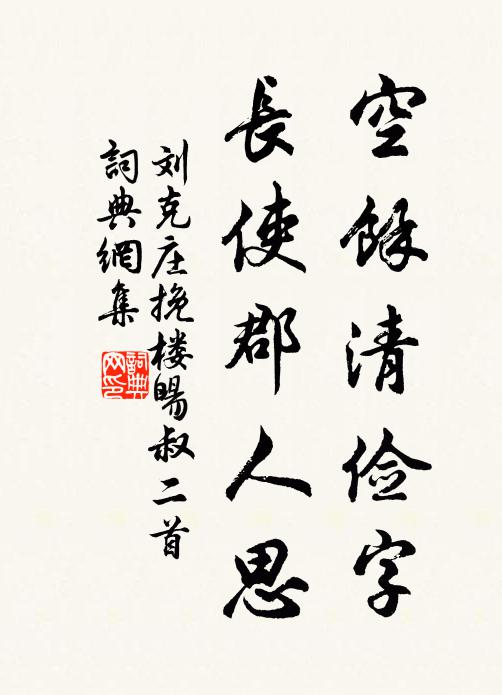 空餘清俭字
長使郡人思
刘克庄挽楼昜叔二首
詞典網集
詞典
网印